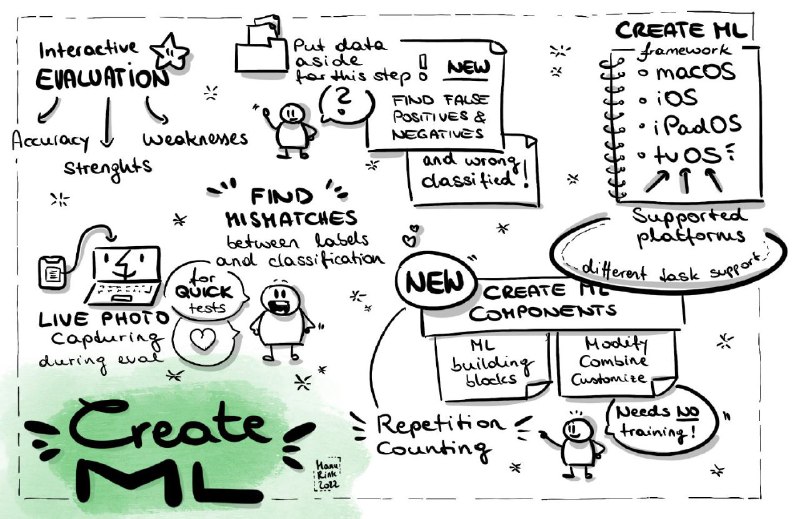 Interactive
EVALUATION
Accuracy
Strenghts
Weaknesses
Put data
aside
for this step !
?
NEW
FIND FALSE
POSITIVES &
NEGATIVES
and wrong
classified!
CREATE ML
framework
macOS
iOS
iPadOS
tvOS
Supported
platforms
different task support
FIND
MISMATCHES
between labels
and classification
LIVE PHOTO
Capturing
during eval
for
QUICK
tests
NEW
CREATE ML
COMPONENTS
ML
building
blocks
Modify
Combine
Customize
Repetition
Counting
Needs NO
training!
Create
ML
Hanu
Rink
2022